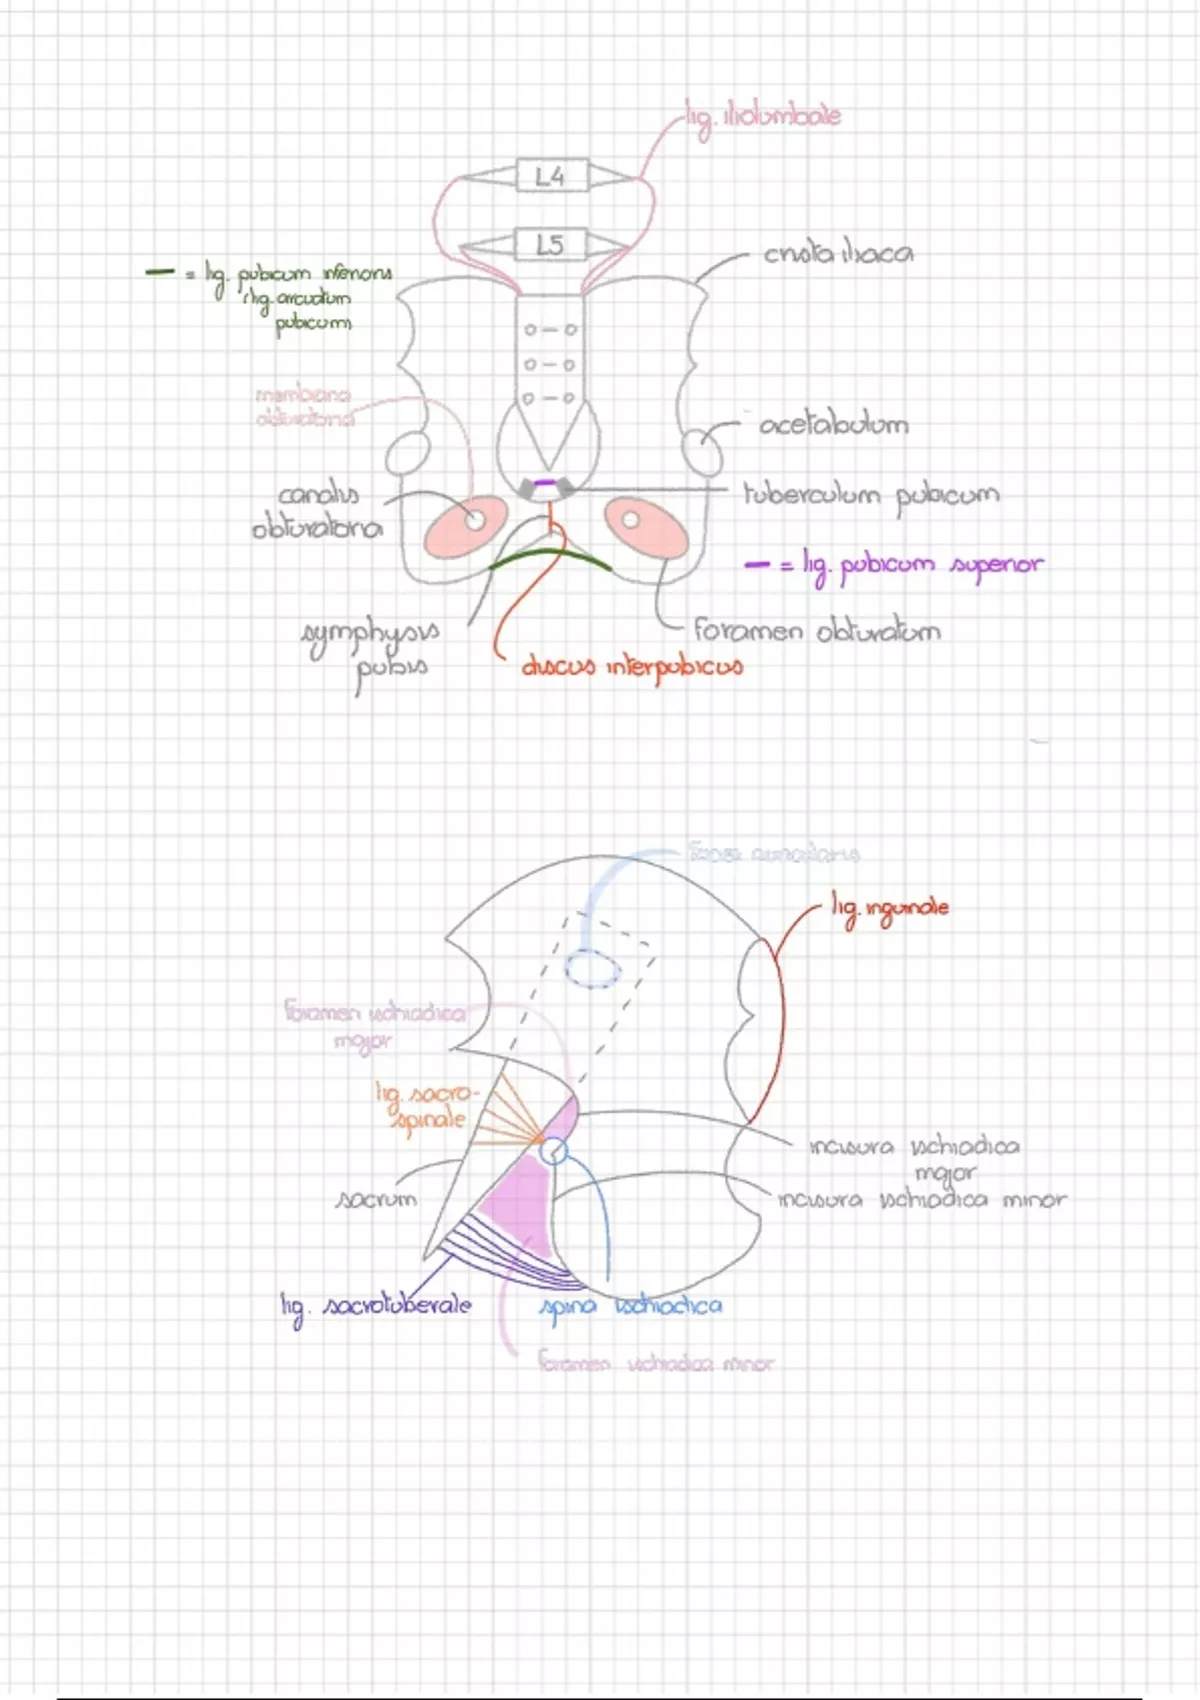 lig. iliolumbale
L4
L5
crista iliaca
= lig. pubicum inferioris
(lig. arcuatum
pubicum)
membrana
obturatoria
acetabulum
canalis
obturatoria
tuberculum pubicum
= lig. pubicum superior
symphysis
pubis
foramen obturatum
discus interpubicus
facies auricularis
lig. inguinale
foramen ischiadica
major
lig. sacro-
spinale
incisura ischiadica
major
sacrum
incisura ischiadica minor
lig. sacrotuberale
spina ischiadica
foramen ischiadica minor